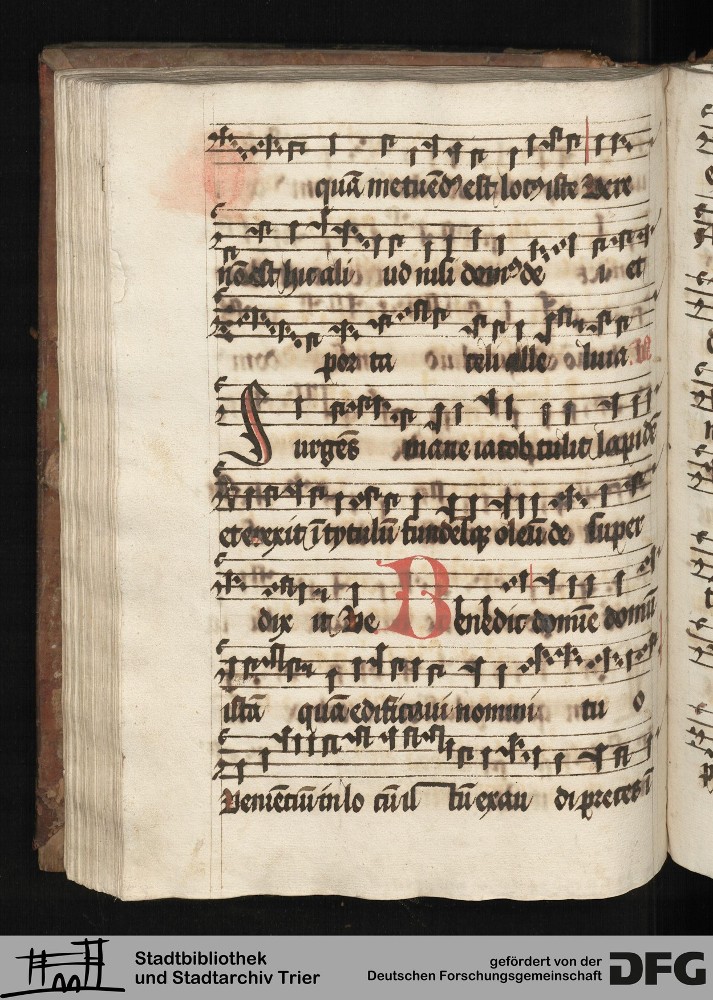 quā metuēdꝰ est locꝰ iste Vere
nō est hic ali ud nisi domꝰ de i et
por ta celi alle luia
Surgēs mane iacob tulit lapidē
et erexit ī tytulū fundesqꝫ oleū de super
dix it Ve Benedic domīe domū
istā quā edificaui nomini tu o
Venienciū in lo cū is tū exau di preces ī
Stadtbibliothek
und Stadtarchiv Trier
gefördert von der
Deutschen Forschungsgemeinschaft
DFG